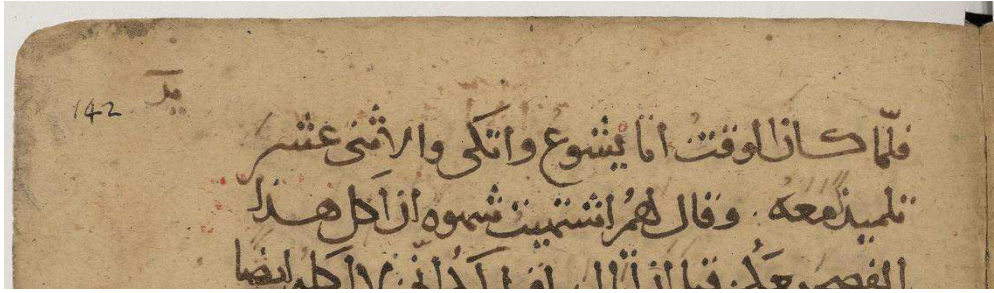 يد
142
فلمّا كان الوقت اتا يشوع واتكى والاثنى عشر
تلميذ معه . وقال لهم اشتهيت شهوه ان اكل هذا
الفصح معكم قبل ان اكل ايضا